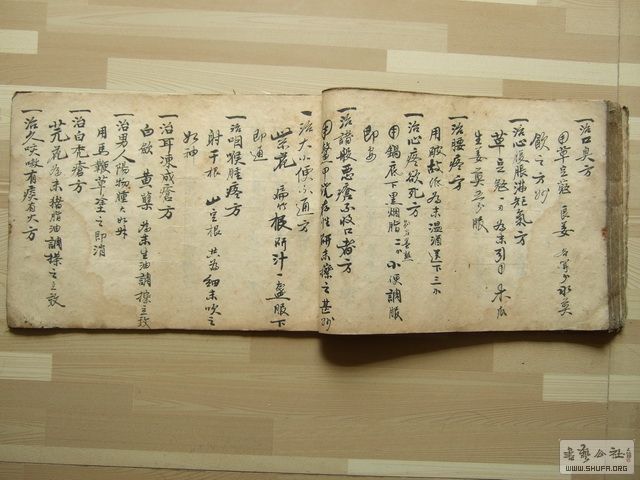 一治口臭方
用草豆蔻 良姜 各等分 水煎
飲之方妙
一治心腹脹滿短氣方
草豆蔻一刀為末引用木瓜
生姜煎湯服
一治腰疼方
用破故紙為末溫酒送下三分
一治心疼欲死方
用鍋底下黑烟脂二分小便調服
即安
一治諸般惡瘡不收口者方
用鱉甲燒存性研末擦之甚妙
一治大小便不通方
紫花 扁竹根研汁一盞服下
即通
一治咽喉腫疼方
射干根 山豆根 共為細末吹之
如神
一治耳凍成瘡方
白斂 黃蘗 為末生油調擦立效
一治男人陽物腫大
用馬鞭草塗之即消
一治白禿瘡方
芫花為末猪脂油調搽之立效
一治久咳嗽有痰有火方
書藝公社
WWW.SHUFA.ORG